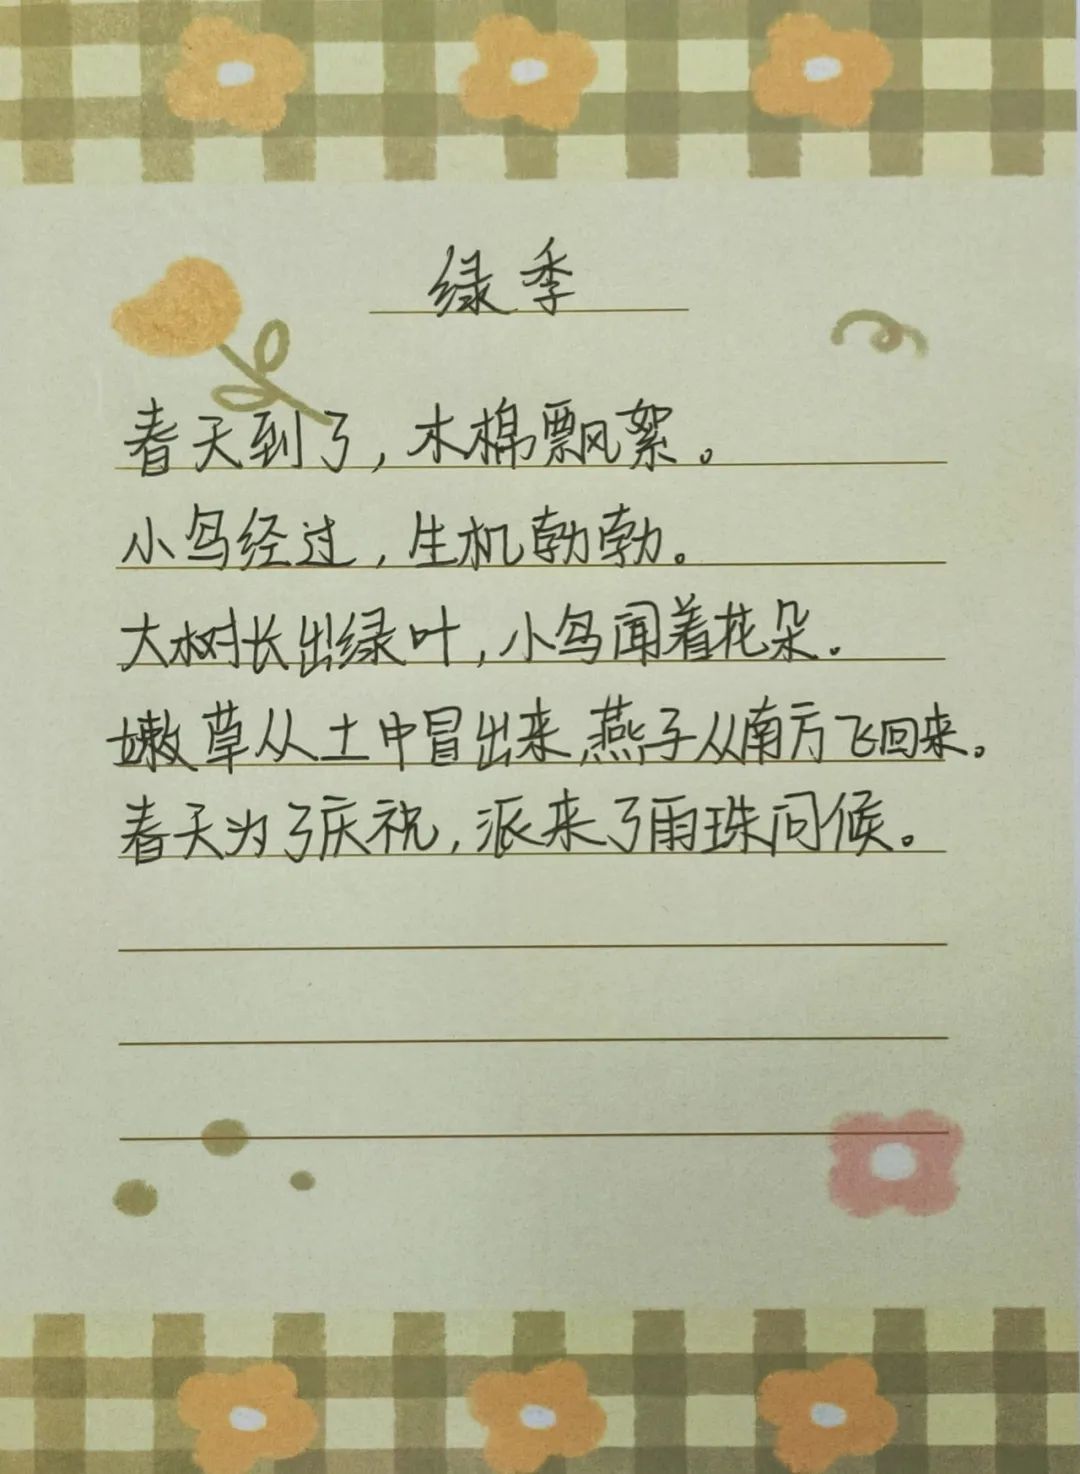 绿季
春天到了,木棉飘絮。
小鸟经过,生机勃勃。
大树长出绿叶,小鸟闻着花朵.
嫩草从土中冒出来,燕子从南方飞回来。
春天为了庆祝,派来了雨珠问候。